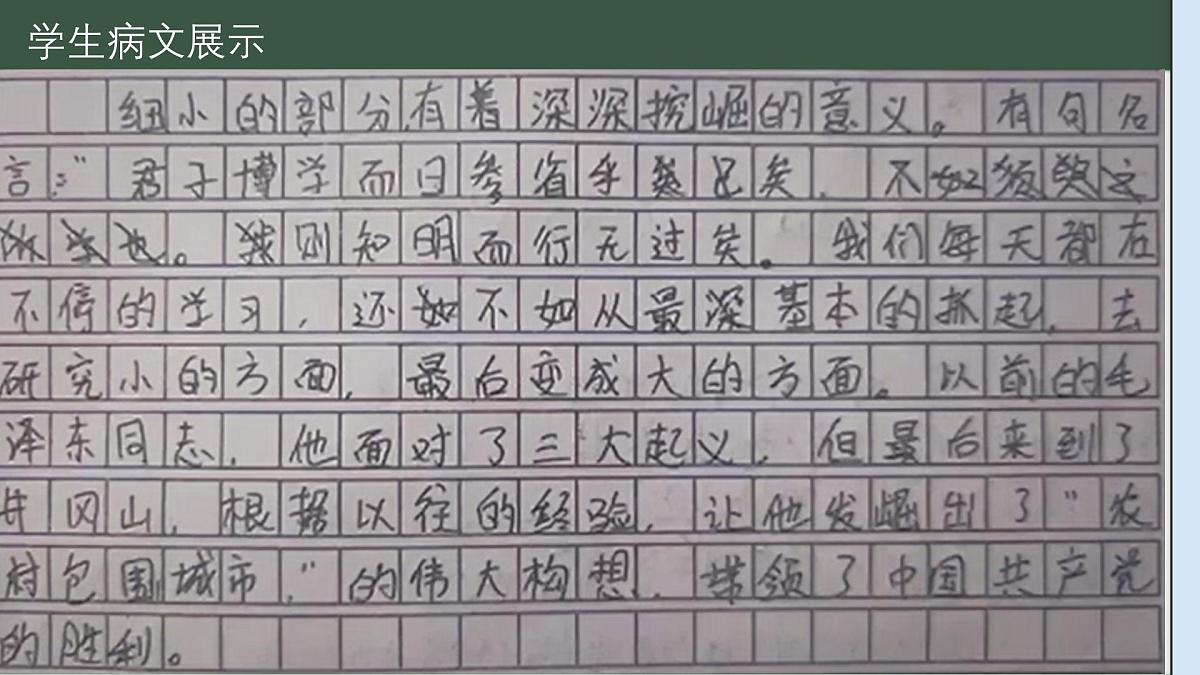 学生病文展示
细小的部分,有着深深挖崛的意义。有句名
言:“君子博学而日参省乎己矣,不如须臾之
所学也。则知明而行无过矣。我们每天都在
不停的学习,还不如从最深基本的抓起,去
研究小的方面,最后变成大的方面。以前的毛
泽东同志,他面对了三大起义,但最后来到了
井冈山,根据以往的经验,让他发崛出了“农
村包围城市,”的伟大构想,带领了中国共产党
的胜利。